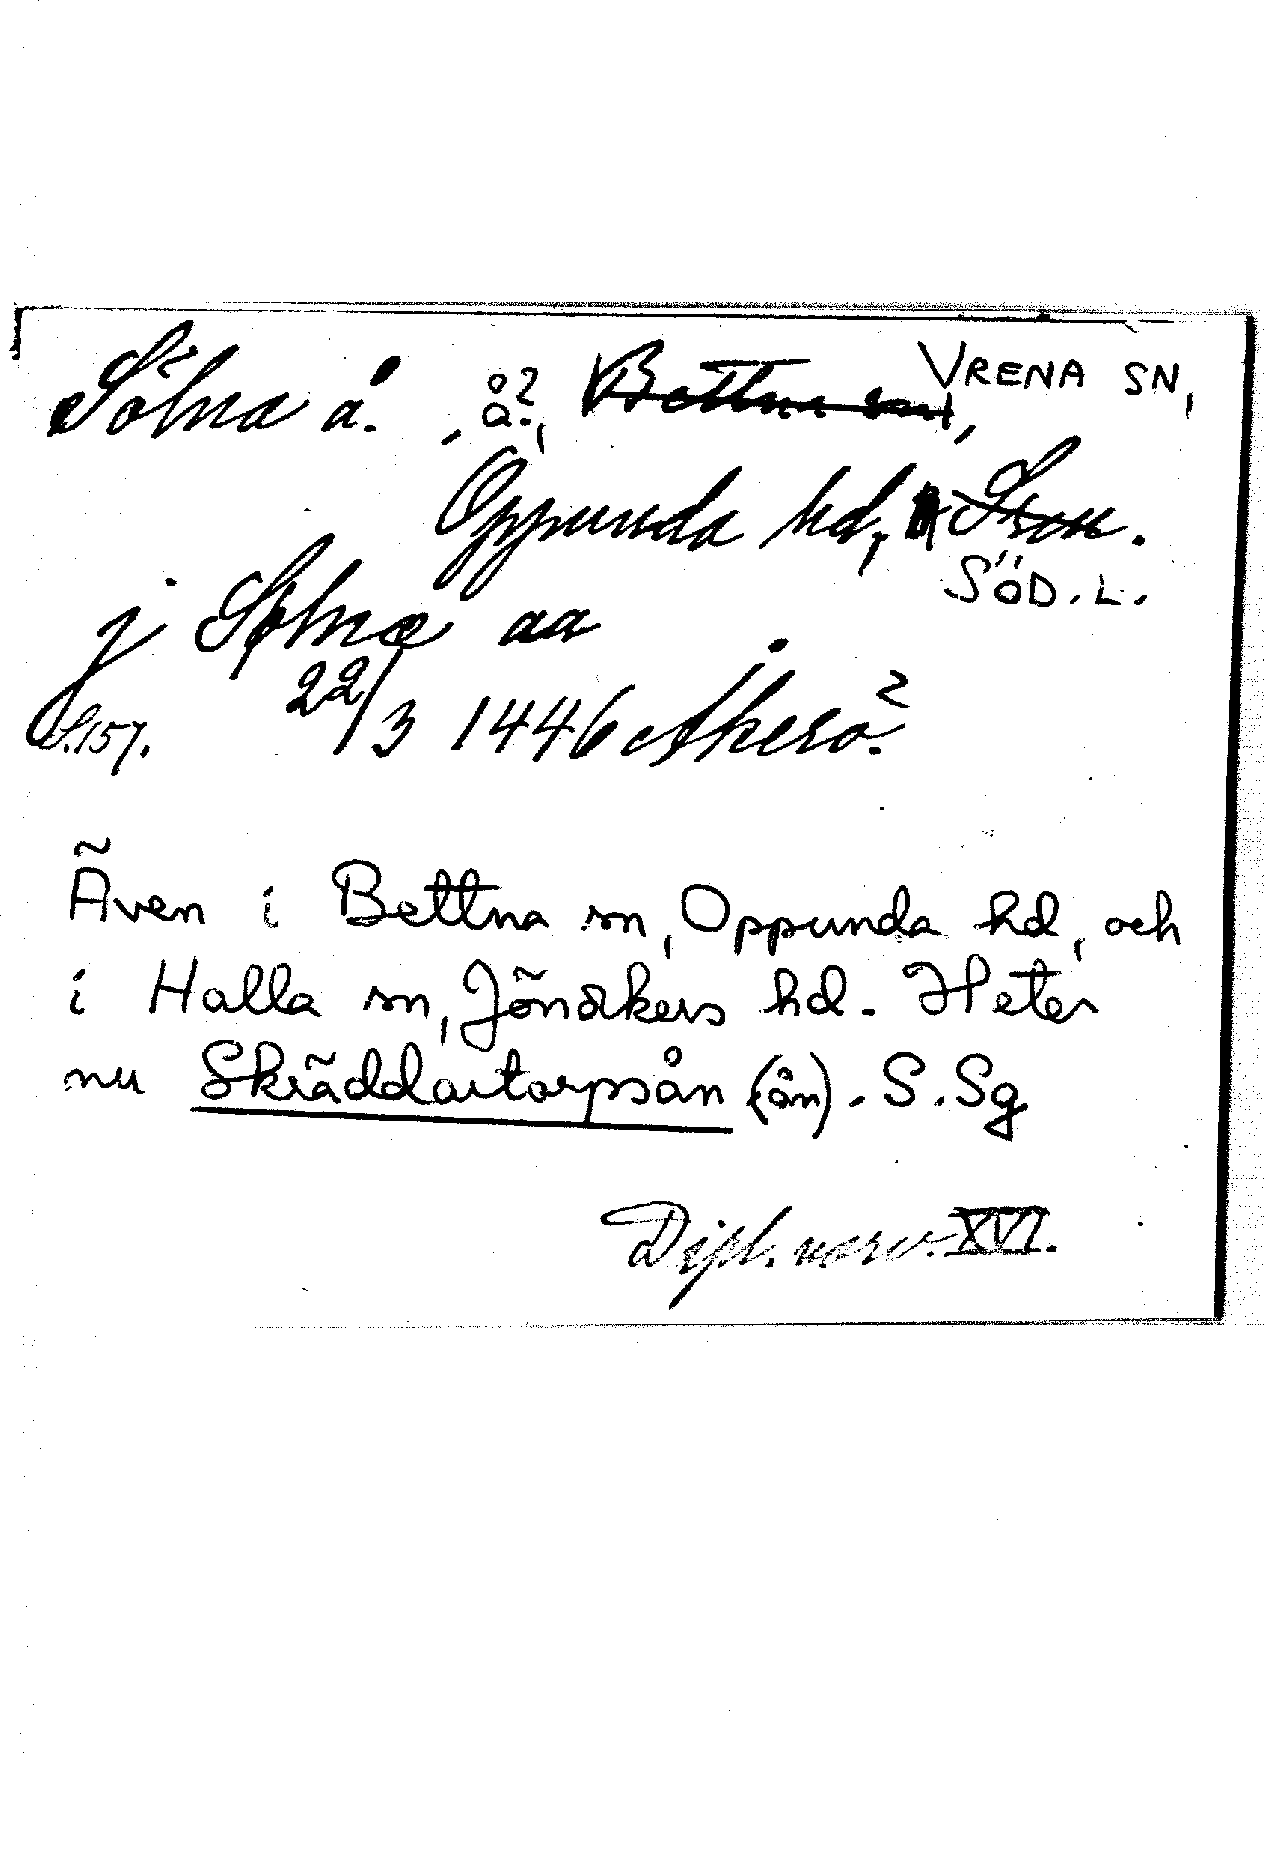 Sölna å. , å?, Bettna sn, VRENA SN,
Oppunda hd, Srm.
SÖD. L.
j Sølnæ aa
S.157. 22/3 1446 Åkerö?
Även i Bettna sn, Oppunda hd, och
i Halla sn, Jönåkers hd. Heter
nu Skräddartorpsån (ån). S.Sg
Dipl. norv. XVI.